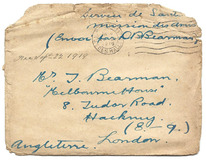 Service de Santé
mission des
(Envoi par D. Bearman)
Sept 22 1918
Mr. T. Bearman.
"Melbourne House"
8. Tudor Road.
Hackney
(E. 9.)
Angleterre. London.